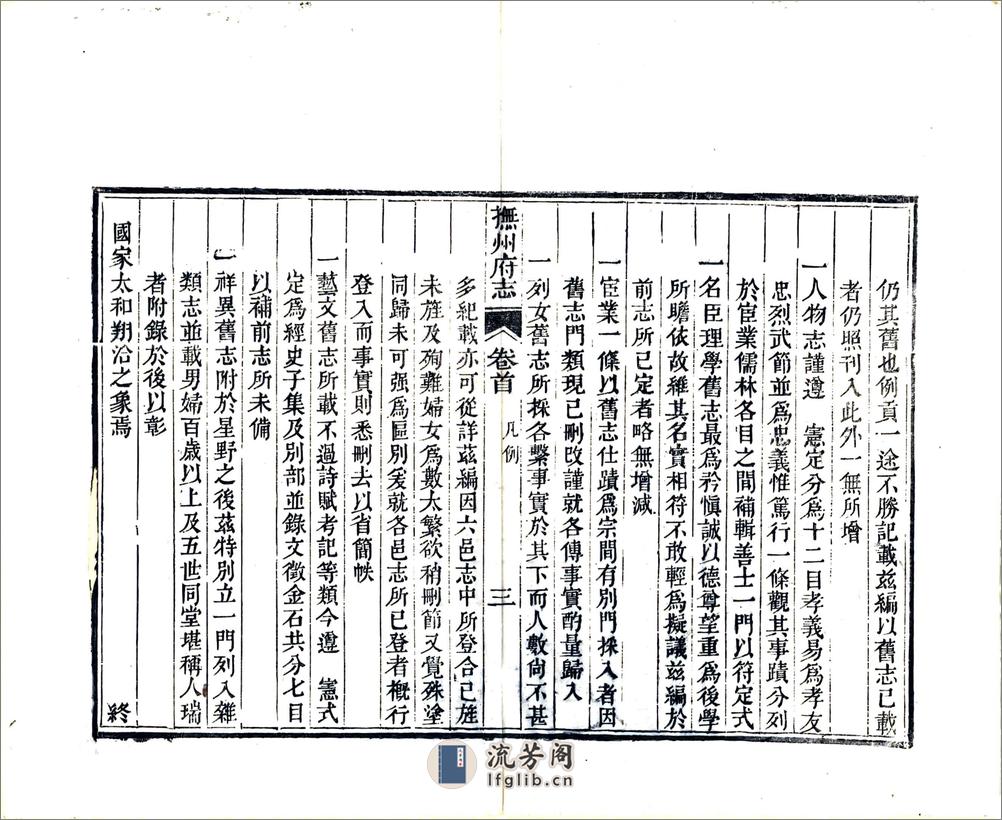 仍其舊也例貢一途不勝記載茲編以舊志已載
者仍照刊入此外一無所增
一人物志謹遵　憲定分爲十二目孝義易爲孝友
忠烈武節並爲忠義惟篤行一條觀其事蹟分列
於宦業儒林各目之間補輯善士一門以符定式
一名臣理學舊志最爲矜慎誠以德尊望重爲後學
所瞻依故雖其名實相符不敢輕爲擬議茲編於
前志所已定者略無增減
一宦業一條以舊志仕蹟爲宗間有別門採入者因
舊志門類現已刪改謹就各傳事實酌量歸入
一列女舊志所採各繫事實於其下而人數尙不甚
撫州府志
卷首
凡例
三
多紀載亦可從詳茲編因六邑志中所登合已旌
未旌及殉難婦女爲數太繁欲稍刪節又覺殊塗
同歸未可强爲區別爰就各邑志所已登者概行
登入而事實則悉刪去以省簡帙
一藝文舊志所載不過詩賦考記等類今遵　憲式
定爲經史子集及別部並錄文徵金石共分七目
以補前志所未備
一祥異舊志附於星野之後茲特別立一門列入雜
類志並載男婦百歲以上及五世同堂堪稱人瑞
者附錄於後以彰
國家太和翔洽之象焉
終
流芳阁
lfglib.cn